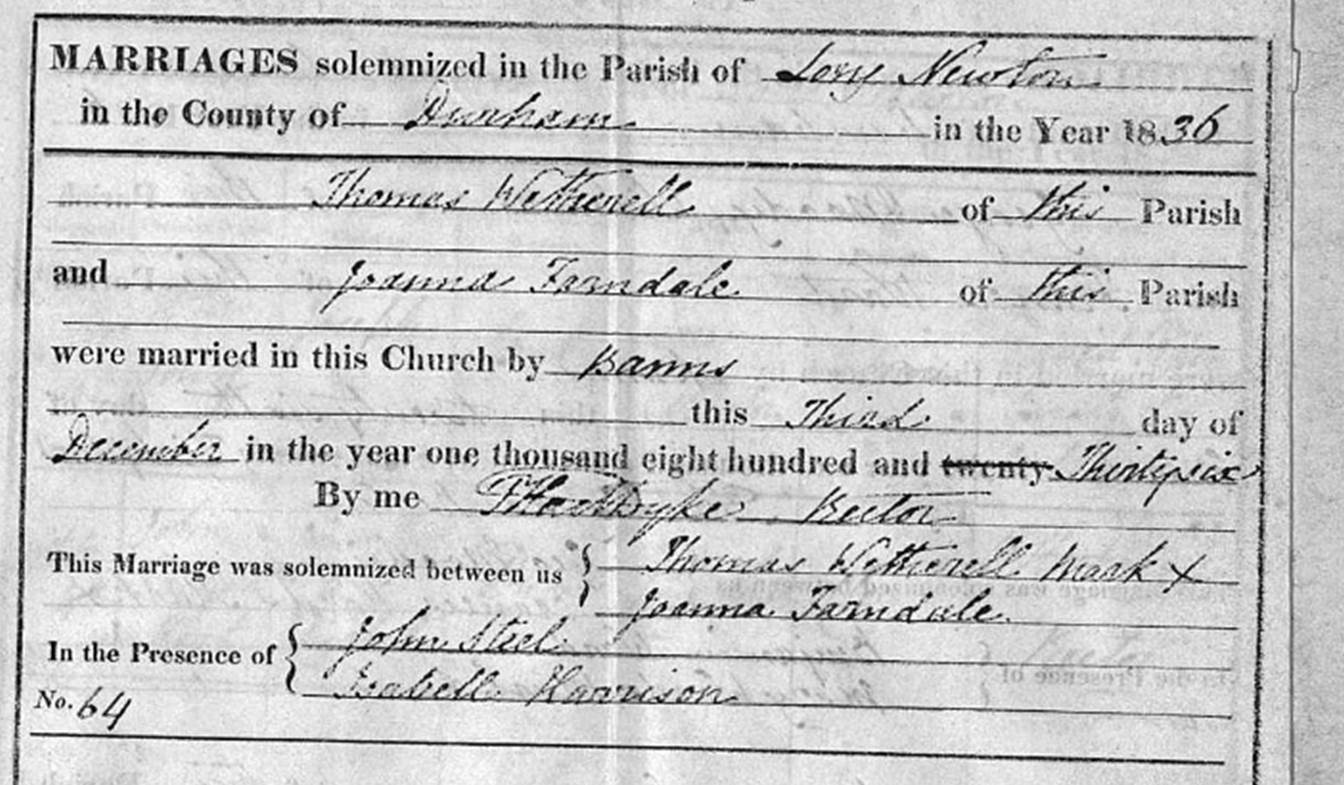 MARRIAGES solemnized in the Parish of Long Newton
in the County of Durham in the Year 1836
Thomas Wetherell of this Parish
and Joanna Farndale of this Parish
were married in this Church by Banns
this Third day of
December in the year one thousand eight hundred and twenty Thirty six
By me Rector
This Marriage was solemnized between us { Thomas Wetherell Mark X
Joanna Farndale
In the Presence of { John Steel
Isabell Harrison
No. 64